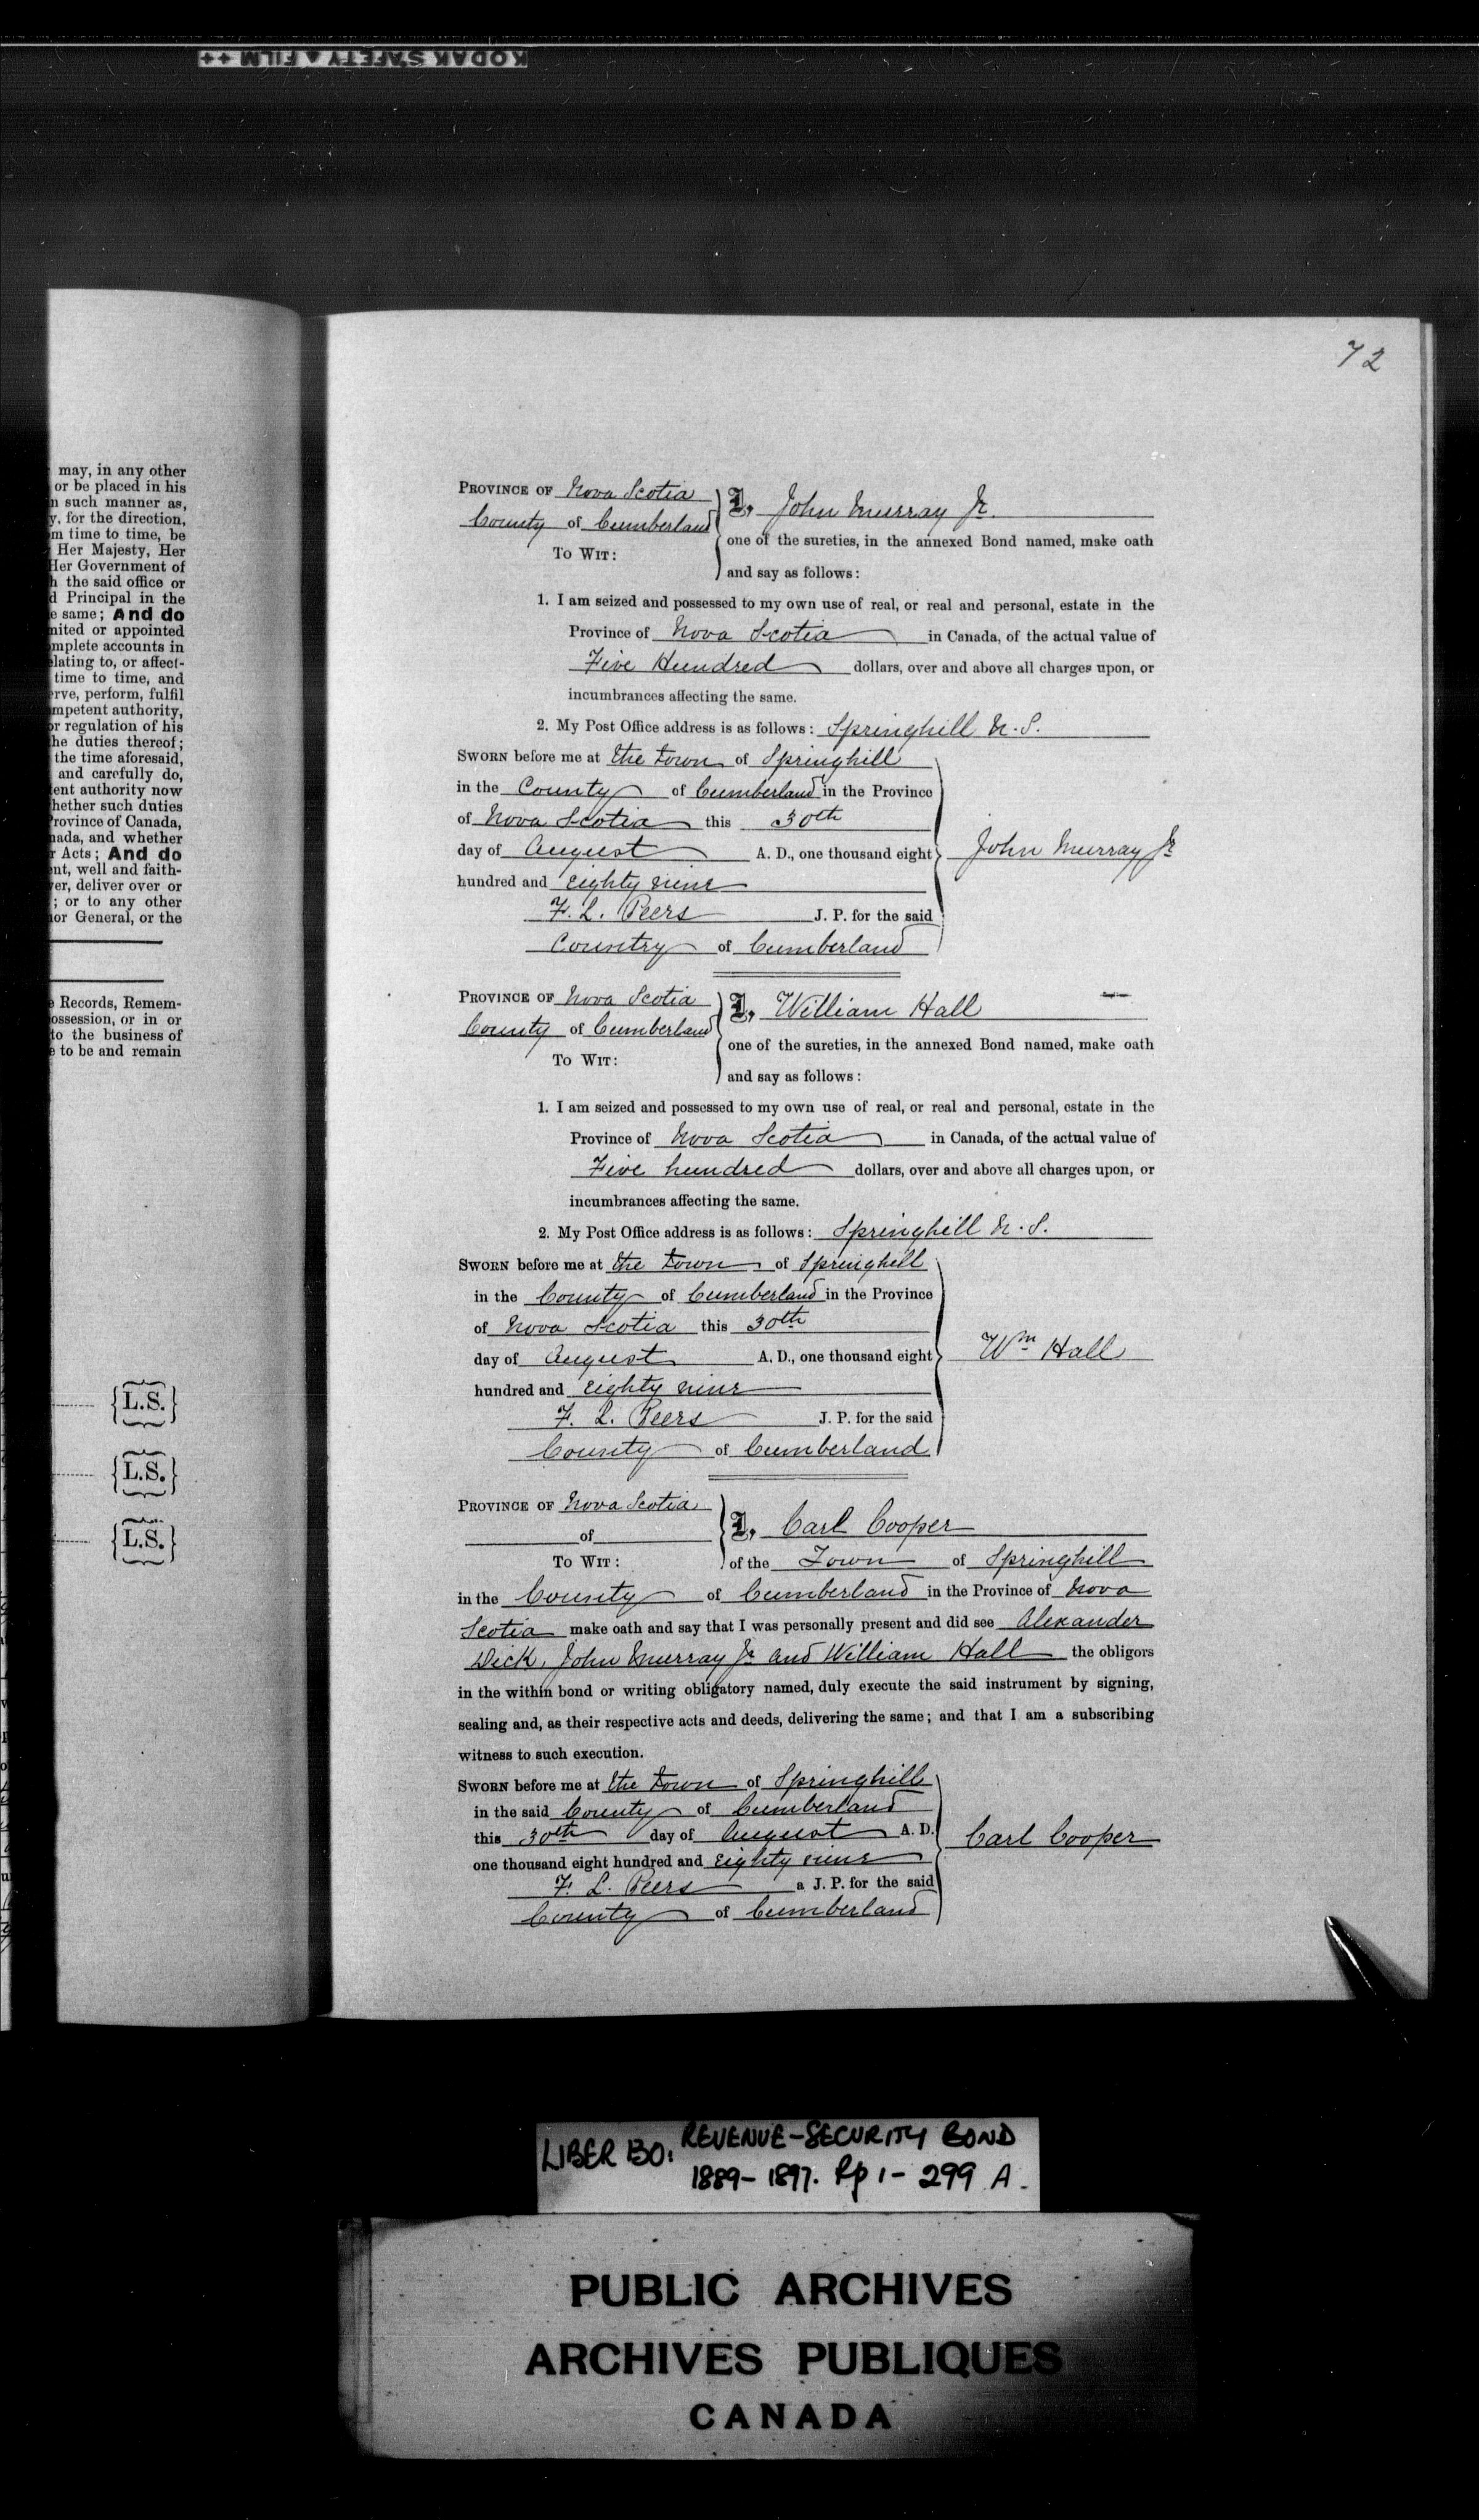 KODAK SAFETY FILM ++
72
may, in any other
or be placed in his
such manner as,
for the direction,
time to time, be
Her Majesty, Her
Her Government of
the said office or
Principal in the
same; And do
or appointed
accounts in
to, or affect-
time to time, and
perform, fulfil
authority,
or regulation of his
the duties thereof;
the time aforesaid,
and carefully do,
authority now
whether such duties
Province of Canada,
and whether
Acts; And do
well and faith-
deliver over or
; or to any other
General, or the
Records, Remem-
or in or
to the business of
to be and remain
{L.S.}
{L.S.}
{L.S.}
PROVINCE OF Nova Scotia
County of Cumberland
TO WIT:
I, John Murray Jr.
one of the sureties, in the annexed Bond named, make oath
and say as follows:
1. I am seized and possessed to my own use of real, or real and personal, estate in the
Province of Nova Scotia in Canada, of the actual value of
Five Hundred dollars, over and above all charges upon, or
incumbrances affecting the same.
2. My Post Office address is as follows: Springhill N.S.
SWORN before me at the town of Springhill
in the County of Cumberland in the Province
of Nova Scotia this 30th
day of August A. D., one thousand eight
hundred and eighty nine
F. L. Peers J. P. for the said
Country of Cumberland
John Murray Jr
PROVINCE OF Nova Scotia
County of Cumberland
TO WIT:
I, William Hall
one of the sureties, in the annexed Bond named, make oath
and say as follows:
1. I am seized and possessed to my own use of real, or real and personal, estate in the
Province of Nova Scotia in Canada, of the actual value of
Five hundred dollars, over and above all charges upon, or
incumbrances affecting the same.
2. My Post Office address is as follows: Springhill N.S.
SWORN before me at the town of Springhill
in the County of Cumberland in the Province
of Nova Scotia this 30th
day of August A. D., one thousand eight
hundred and eighty nine
F. L. Peers J. P. for the said
County of Cumberland
Wm Hall
PROVINCE OF Nova Scotia
of
TO WIT:
I, Carl Cooper
of the Town of Springhill
in the County of Cumberland in the Province of Nova
Scotia make oath and say that I was personally present and did see Alexander
Dick, John Murray Jr and William Hall the obligors
in the within bond or writing obligatory named, duly execute the said instrument by signing,
sealing and, as their respective acts and deeds, delivering the same; and that I am a subscribing
witness to such execution.
SWORN before me at the town of Springhill
in the said County of Cumberland
this 30th day of August A. D.
one thousand eight hundred and eighty nine
F. L. Peers a J. P. for the said
County of Cumberland
Carl Cooper
LIBER 130: REVENUE-SECURITY BOND
1889-1897. Pp 1-299 A.
PUBLIC ARCHIVES
ARCHIVES PUBLIQUES
CANADA